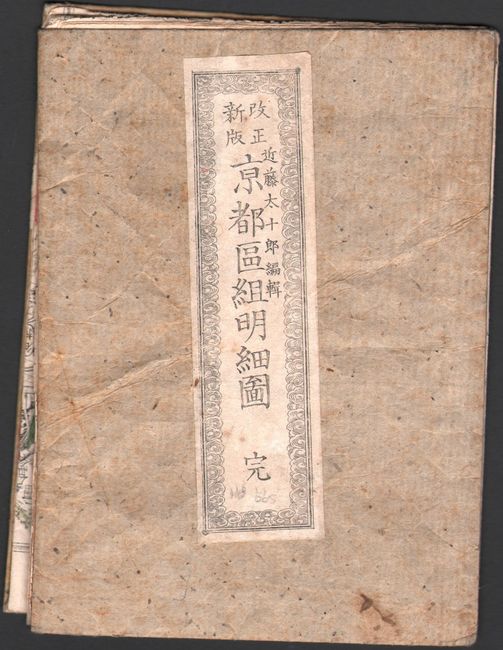 改正
新版
近藤太十郎編輯
京都區組明細圖 完